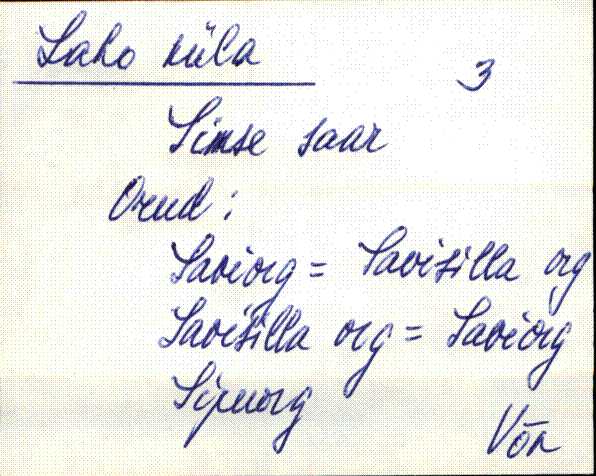 Laho küla
3
Simse saar
Orud:
Saviorg = Savisilla org
Savisilla org = Saviorg
Sipuorg
Võn